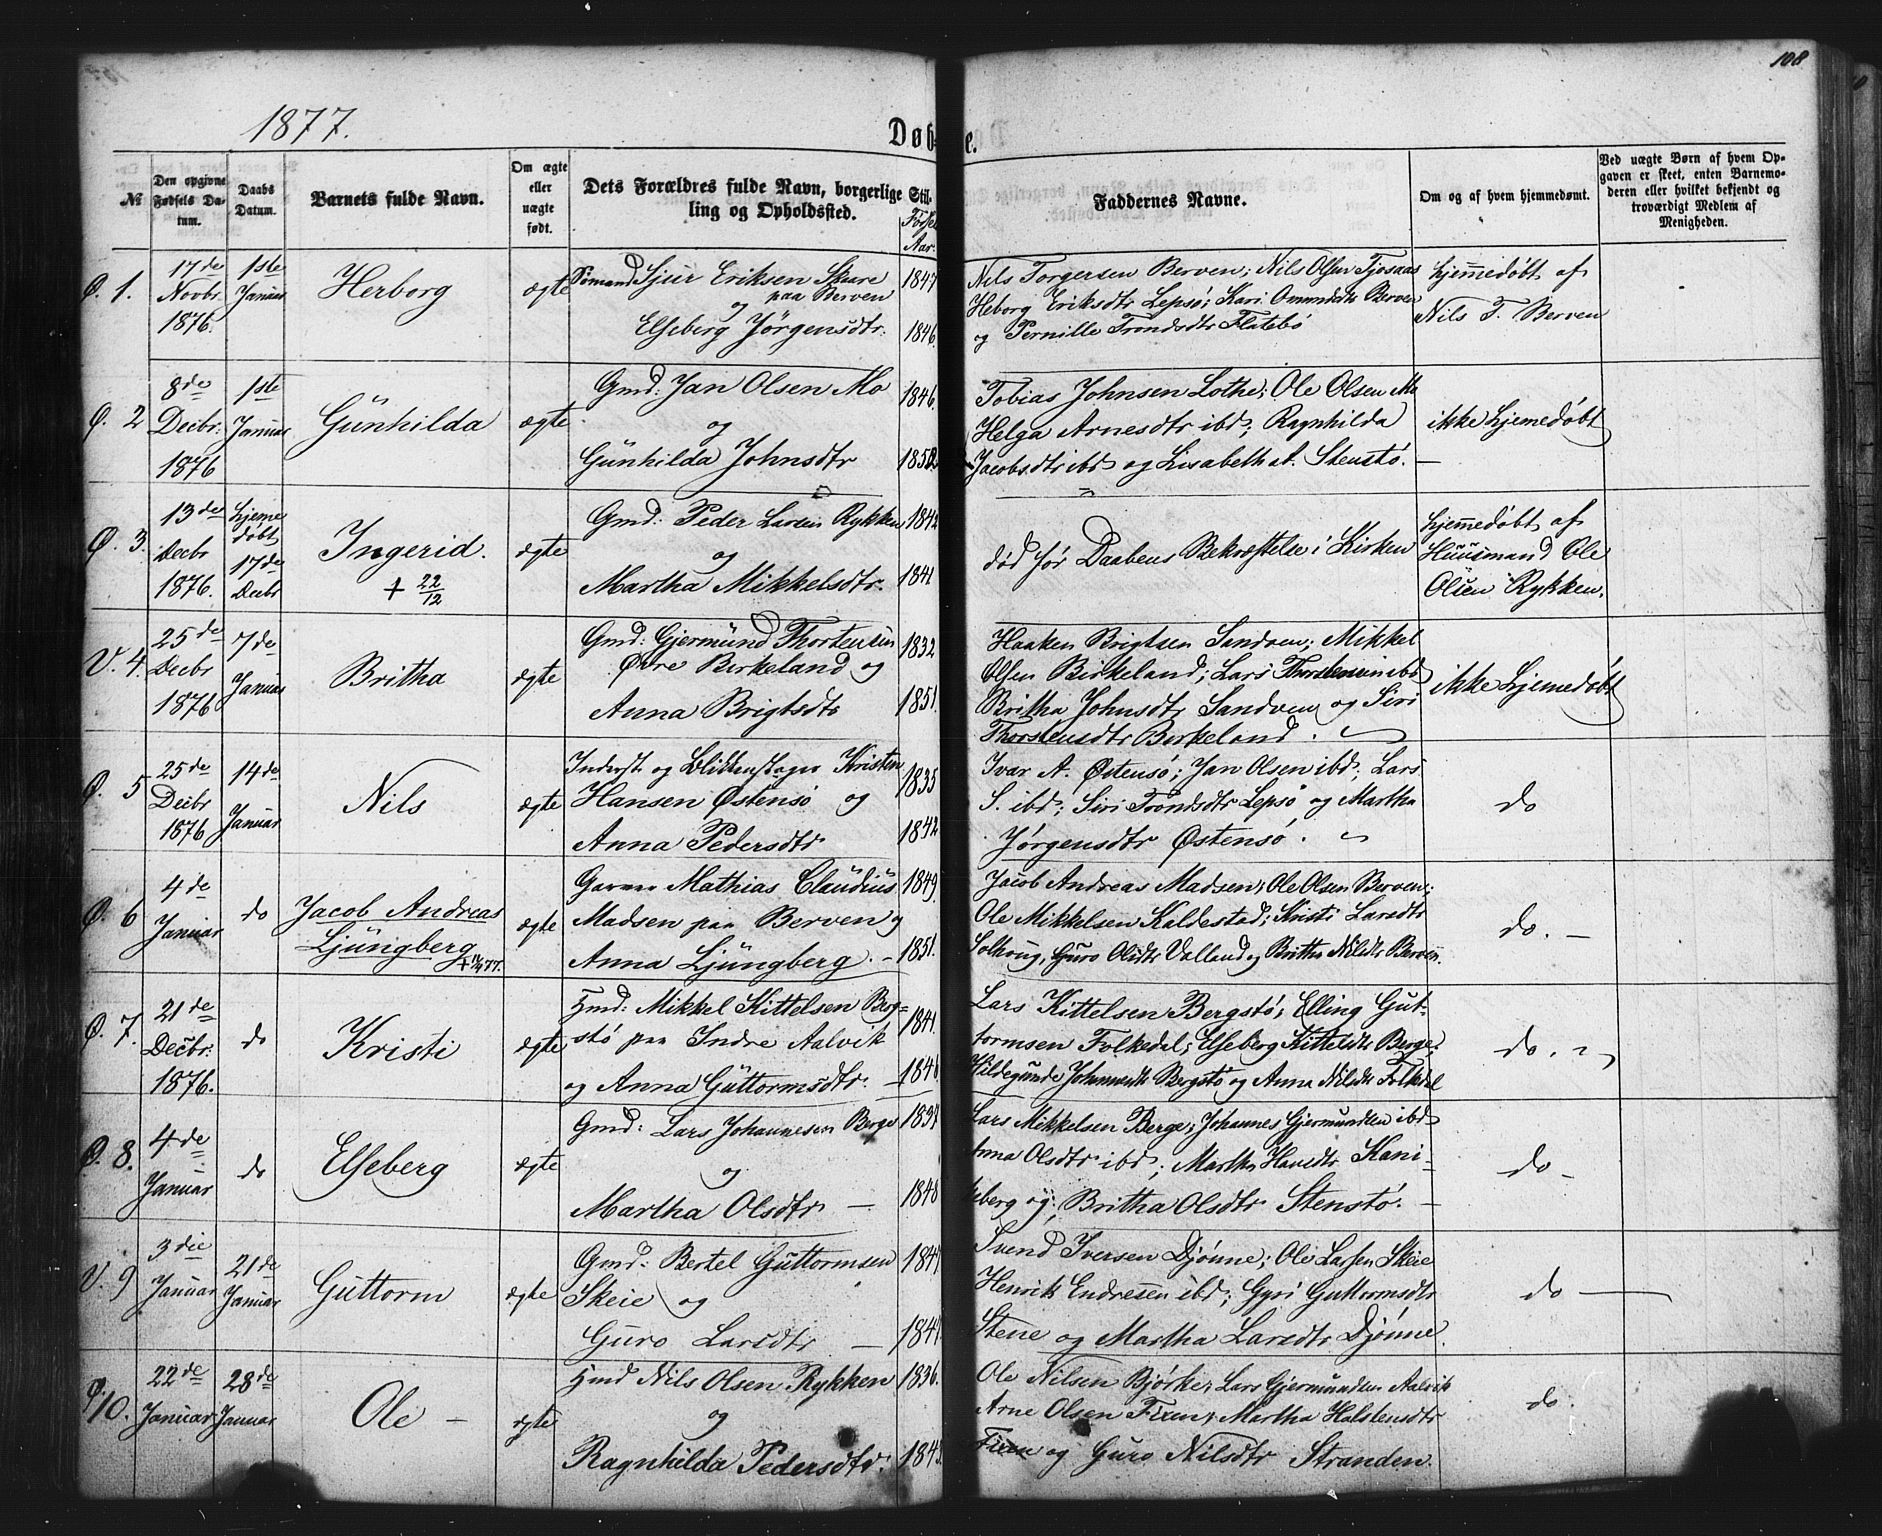 108
1877.
Døb- e.
№
Den opgivne Fødsels Datum.
Daabs Datum.
Barnets fulde Navn.
Om ægte eller uægte født.
Dets Forældres fulde Navn, borgerlige Stilling og Opholdssted.
Føds. Aar.
Faddernes Navne.
Om og af hvem hjemmedømt.
Ved uægte Børn af hvem Opgaven er skeet, enten Barnemoderen eller hvilket bekjendt og troværdigt Medlem af Menigheden.
Ø. 1.
17de Novbr. 1876.
1ste Januar
Herborg
ægte
Sjur Eriksen Skare
paa Berven
og
Elseberg Jørgensdtr.
1847
1846.
Nils Torgersen Berven; Nils Olsen
Heborg Eriksdtr Lepsø; Kari Berven
og Pernille Trondsdtr Flatebø
hjemmedøbt af
Nils T. Berven
Ø. 2
8de Decbr. 1876
1ste Januar
Gunhilda
ægte
Gmd: Jan Olsen Mo
og
Gunhilda Johnsdtr
1846.
1852
Tobias Johnsen Lothe; Ole Olsen Mo
Helga Arnesdtr ibd; Ragnhilda
Jacobsdtr ibd og Lisabeth at. Stenstø.
ikke hjemedøbt
Ø. 3.
13de Decbr 1876.
hjemedøbt 17de Decbr
Ingerid.
+ 22/12
ægte
Gmd: Peder Larsen Rykken
og
Martha Mikkelsdtr.
1842
1841
død før Daabens Bekræftelse i Kirken
hjemmedøbt af
Huusmand Ole
Olsen Rykken.
V. 4.
25de Decbr 1876
7de Januar
Britha
ægte
Gmd: Gjermund Thorsteinsen
Øvre Birkeland og
Anna Brigtsdtr
1832
1851.
Haaken Brigtsen Sandven; Mikkel
Olsen Birkeland; Lars Thorsteinsen ibd
Britha Johnsdtr Sandven og Siri
Thorsteinsdtr Birkeland.
ikke hjemedøbt
Ø. 5
25de Decbr 1876
14de Januar
Nils
ægte
Inderst og Blikkenslager Kristen
Hansen Østensø og
Anna Pedersdtr
1835
1842
Ivar A. Østensø; Jan Olsen ibd; Lars
S. ibd; Siri Trondsdtr Lepsø og Martha
Jørgensdtr Østensø.
do
Ø. 6
4de Januar
do
Jacob Andreas
Ljüngberg
ægte
Garver Mathias Claudius
Madsen paa Berven og
Anna Ljüngberg. –
1849.
1851.
Jacob Andreas Madsen; Ole Olsen Berven;
Ole Mikkelsen Kaldestad; Kristi Larsdtr
Solhoug, Guro Olsdtr Valland og Britha Nilsdtr Berven.
do. –
Ø. 7.
21de Decbr. 1876.
do
Kristi
ægte
Hmd: Mikkel Kittelsen Berg-
stø paa Indre Aalvik
og Anna Guttormsdtr.
1841.
1846
Lars Kittelsen Bergstø; Elling Gut-
tormsen Folkedal; Elseberg Kittelsdtr Berge;
Hildegunde Johannesdtr Bergstø og Anna Nilsdtr Folkedal
do.
Ø. 8.
4de Januar
do
Elseberg
ægte
Gmd: Lars Johannesen Berge
og
Martha Olsdtr –
1837
1848
Lars Mikkelsen Berge; Johannes Gjermundsen ibd
Anna Olsdtr ibd; Martha Kani-
keberg og Britha Olsdtr Stenstø. –
do –
V. 9
3die Januar
21de Januar
Guttorm
ægte
Gmd: Bertel Guttormsen
Skeie og
Guro Larsdtr –
Svend Iversen Djønne; Ole Larsen Skeie
Henrik Endresen ibd; Gyri Guttormsdtr
Steine og Martha Larsdtr Djønne.
do –
Ø. 10.
22de Januar
28de Januar
Ole –
ægte
Hmd Nils Olsen Rykken
og
Ragnhilda Pedersdtr.
1836.
1843
Ole Nilsen Bjørke; Lars Gjermundsen Aalvik
Arne Olsen Fixen; Martha Halstensdtr
Fixen og Guro Nilsdtr Stranden.
do.